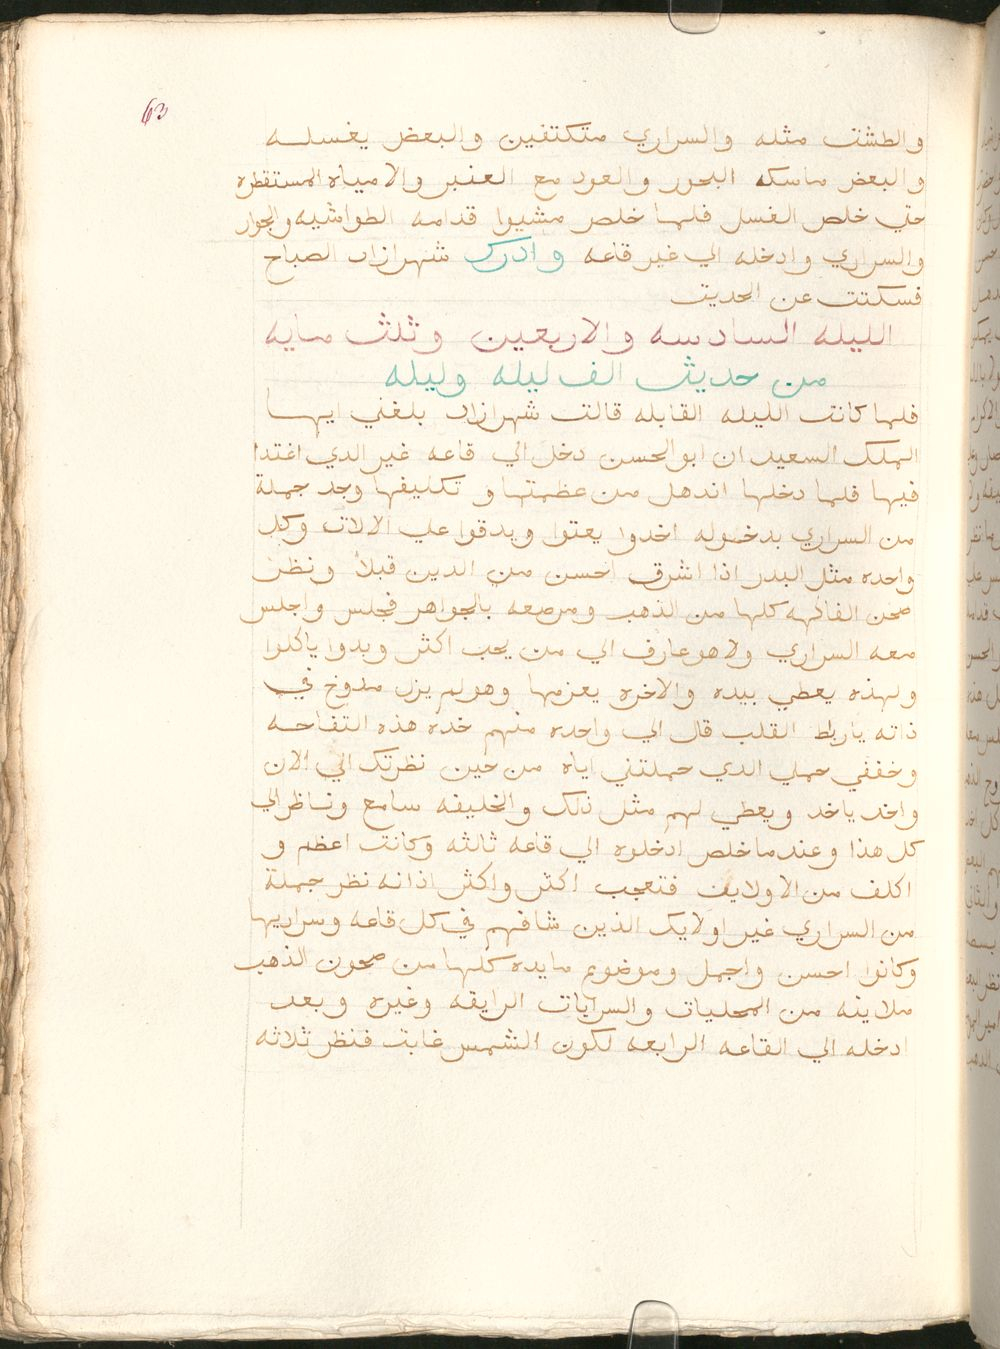 63
والطشت مثله والسراري متكتفين والبعض يغسله
والبعض ماسكه البخور والعود مع العنبر والامياه المستقطره
حتي خلص الغسل فلما خلص مشيوا قدامه الطواشيه والجوار
والسراري وادخله الي غير قاعه وادرك شهرازاد الصباح
فسكتت عن الحديت
الليله السادسه والاربعين وثلث مايه
من حديث الف ليله وليله
فلما كانت الليله القابله قالت شهرازاد بلغني ايها
الملك السعيد ان ابو الحسن دخل الي قاعه غير الدي اغتدا
فيها فلما دخلها اندهل من عظمتها و تكليفها وجد جملة
من السراري بدخوله اخدوا يغنوا ويدقوا علي الالات وكل
واحده مثل البدر اذا اشرق احسن من الدين قبلاً ونظر
صحن الفاكهه كلها من الذهب ومرصعه بالجواهر فجلس واجلس
معه السراري ولا هو عارف الي من يحب اكثر وبدوا ياكلوا
ولهذه يعطي بيده والاخره يعزمها وهو لم يزل مدوخ في
ذاته ياربط القلب قال الي واحده منهم خده هذه التفاحه
وخففي حملي الدي حملتني اياه من حين نظرتك الي الان
واخد ياخد ويعطي لهم مثل ذلك والخليفه سامع وناظر الي
كل هذا وعندما خلص ادخلوه الي قاعه ثالثه وكانت اعظم و
اكلف من الاولايف فتعجب اكثر واكثر اذ انه نظر جملة
من السراري غير اولايك الذين شافهم في كل قاعه وسراريها
وكانوا احسن واجمل وموضوع مايده كلها من صحون الذهب
ملاينه من المحليات والسرابات الرايقه وغيره وبعد
ادخله الي القاعه الرابعه لكون الشمس غابت فنظر ثلاثه